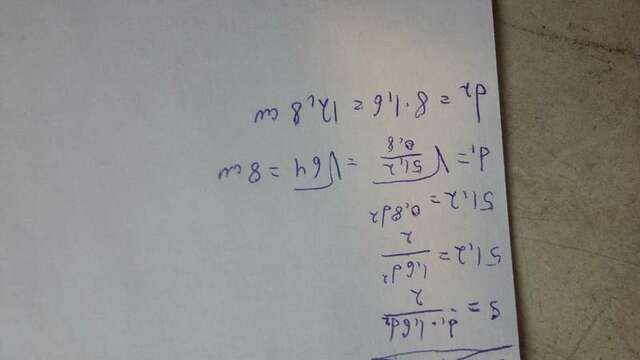 S = d₁·1,6d₂/2
51,2 = 1,6d²/2
51,2 = 0,8d²
d₁ = √(51,2/0,8) = √64 = 8 см
d₂ = 8·1,6 = 12,8 см